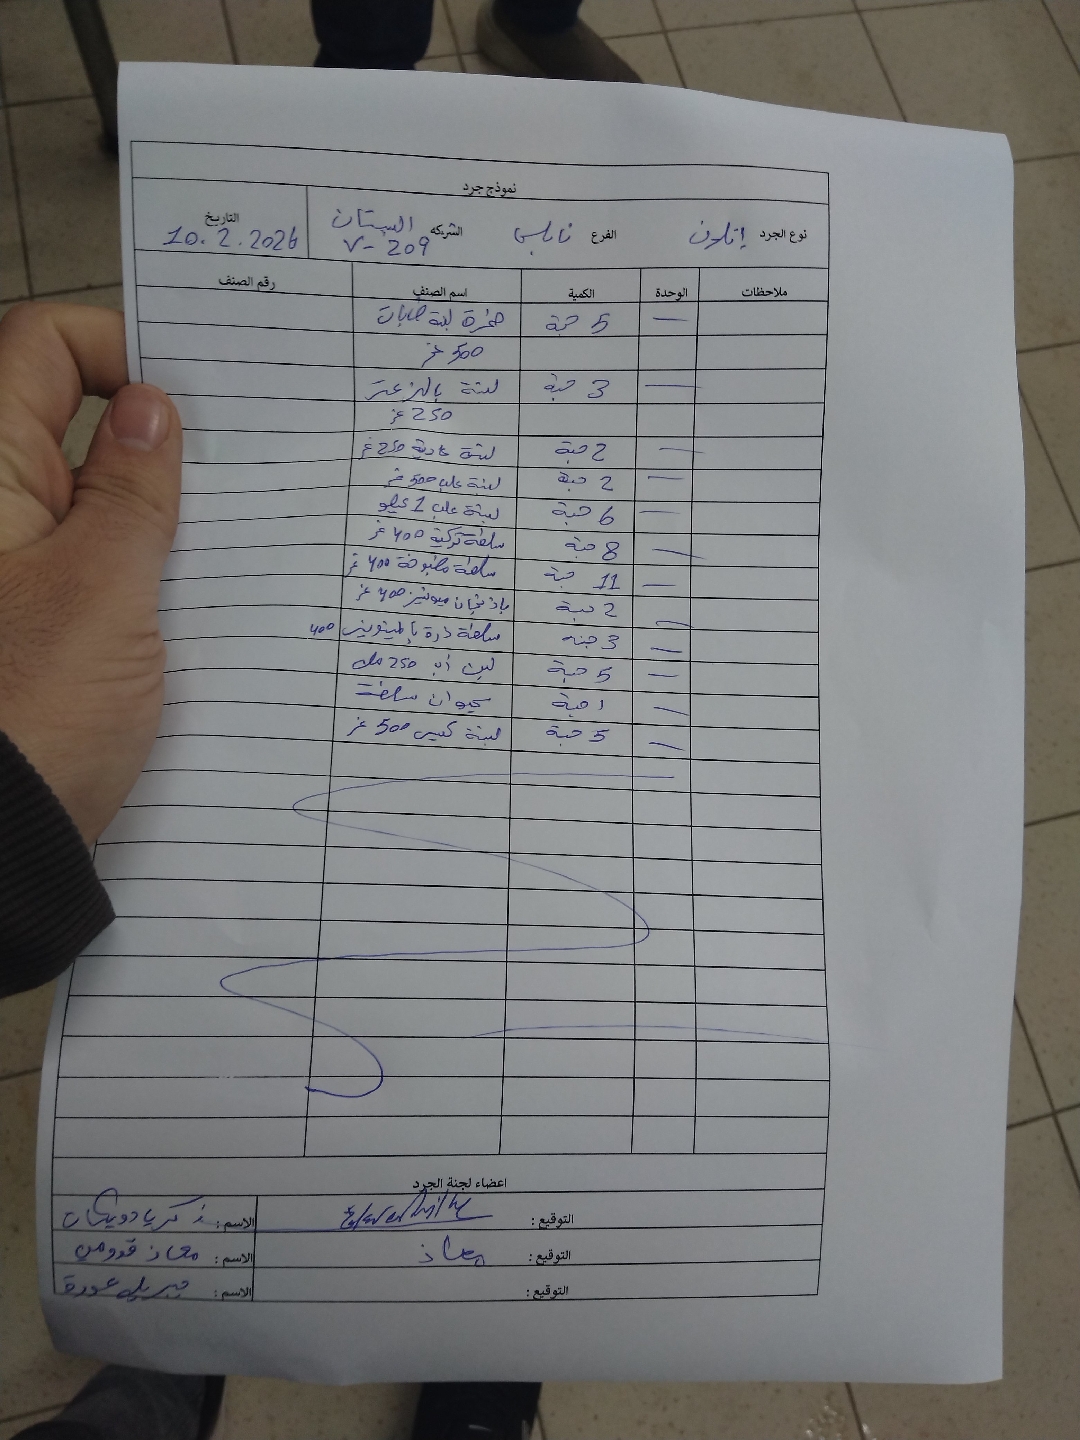 نموذج جرد
نوع الجرد إتلاف الفرع نابلس الشركه البستان التاريخ
V-209 10.2.2026
ملاحظات الوحدة الكمية اسم الصنف رقم الصنف
— 5 حبة لبنة
500 غ
— 3 حبة لبنة بالزعتر
250 غ
— 2 حبة لبنة عادية 250 غ
— 2 حبة لبنة علب 500 غ
— 6 حبة لبنة علب 1 كيلو
— 8 حبة سلطة تركية 400 غ
— 11 حبة سلطة مطبوخة 400 غ
— 2 حبة باذنجان ميونيز 400 غ
— 3 حبه سلطة ذرة بالميونيز 400
— 5 حبة لبن اب 250 مل
— 1 حبة سلطة
— 5 حبة لبنة كيس 500 غ
اعضاء لجنة الجرد
التوقيع : الاسم : زكريا دويكات
التوقيع : معاذ الاسم : معاذ قدومي
التوقيع : الاسم : جبريل عودة